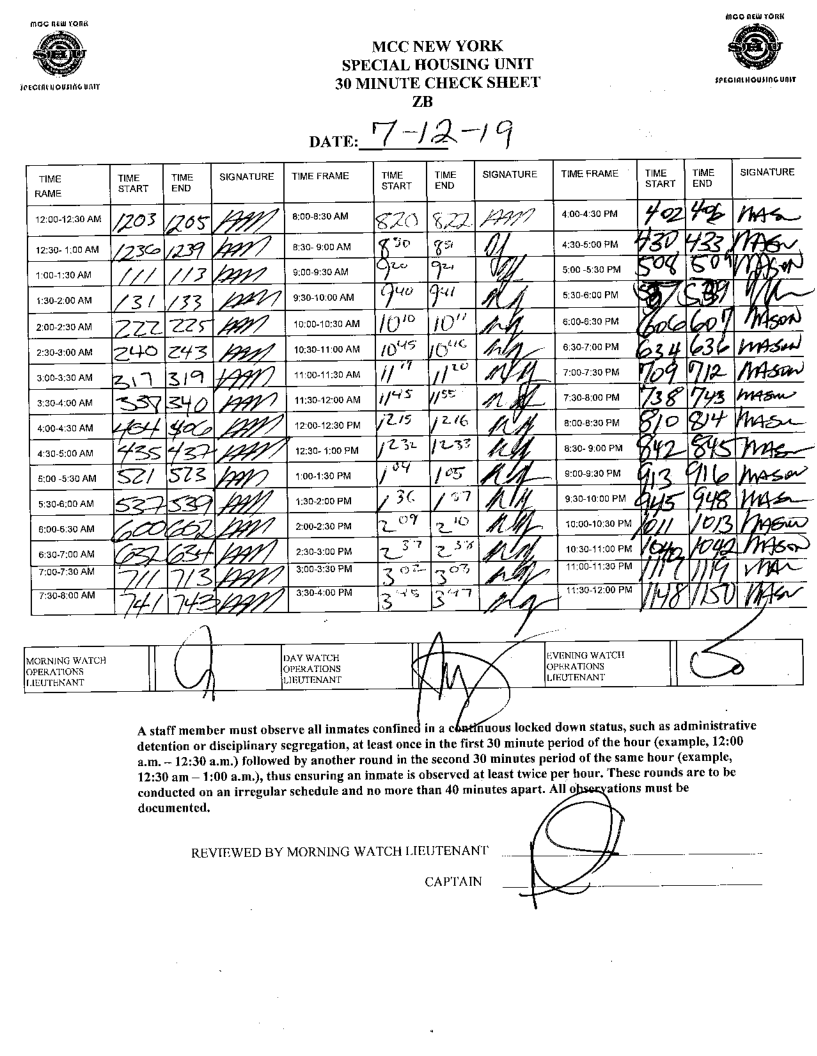 MCC NEW YORK
SHU
SPECIAL HOUSING UNIT
MCC NEW YORK
SHU
SPECIAL HOUSING UNIT
MCC NEW YORK
SPECIAL HOUSING UNIT
30 MINUTE CHECK SHEET
ZB
DATE: 7-12-19
TIME RAME TIME START TIME END SIGNATURE TIME FRAME TIME START TIME END SIGNATURE TIME FRAME TIME START TIME END SIGNATURE
12:00-12:30 AM 1203 1205 8:00-8:30 AM 820 822 4:00-4:30 PM 402 406 MASON
12:30- 1:00 AM 1236 1239 8:30- 9:00 AM 850 851 4:30-5:00 PM 430 433 MASON
1:00-1:30 AM 111 113 9:00-9:30 AM 920 921 5:00 -5:30 PM 508 509 MASON
1:30-2:00 AM 131 133 9:30-10:00 AM 940 941 5:30-6:00 PM 537 539
2:00-2:30 AM 222 225 10:00-10:30 AM 1010 1011 6:00-6:30 PM 606 607 MASON
2:30-3:00 AM 240 243 10:30-11:00 AM 1045 1046 6:30-7:00 PM 634 636 MASON
3:00-3:30 AM 317 319 11:00-11:30 AM 1119 1120 7:00-7:30 PM 709 712 MASON
3:30-4:00 AM 337 340 11:30-12:00 AM 1145 1155 7:30-8:00 PM 738 743 MASON
4:00-4:30 AM 404 406 12:00-12:30 PM 1215 1216 8:00-8:30 PM 810 814 MASON
4:30-5:00 AM 435 437 12:30- 1:00 PM 1232 1233 8:30- 9:00 PM 842 845 MASON
5:00 -5:30 AM 521 523 1:00-1:30 PM 104 105 9:00-9:30 PM 913 916 MASON
5:30-6:00 AM 537 539 1:30-2:00 PM 136 137 9:30-10:00 PM 945 948 MASON
6:00-6:30 AM 600 602 2:00-2:30 PM 209 210 10:00-10:30 PM 1011 1013 MASON
6:30-7:00 AM 632 634 2:30-3:00 PM 237 238 10:30-11:00 PM 1040 1042 MASON
7:00-7:30 AM 711 713 3:00-3:30 PM 302 303 11:00-11:30 PM 1117 1119
7:30-8:00 AM 741 743 3:30-4:00 PM 345 347 11:30-12:00 PM 1148 1150 MASON
MORNING WATCH OPERATIONS LIEUTENANT
DAY WATCH OPERATIONS LIEUTENANT
EVENING WATCH OPERATIONS LIEUTENANT
A staff member must observe all inmates confined in a continuous locked down status, such as administrative
detention or disciplinary segregation, at least once in the first 30 minute period of the hour (example, 12:00
a.m. – 12:30 a.m.) followed by another round in the second 30 minutes period of the same hour (example,
12:30 am – 1:00 a.m.), thus ensuring an inmate is observed at least twice per hour. These rounds are to be
conducted on an irregular schedule and no more than 40 minutes apart. All observations must be
documented.
REVIEWED BY MORNING WATCH LIEUTENANT
CAPTAIN